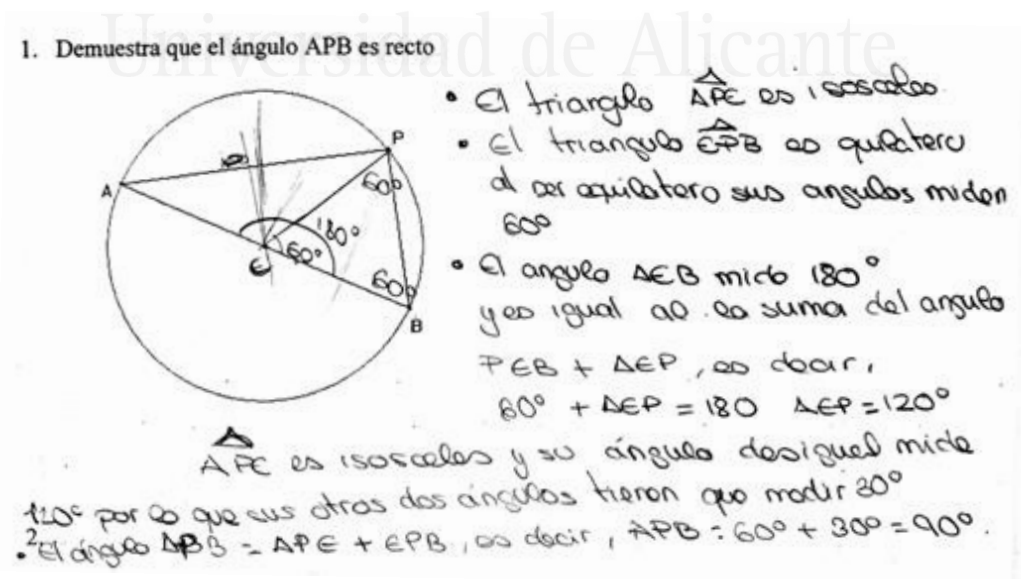 Universidad de Alicante
1. Demuestra que el ángulo APB es recto
• El triangulo APE es isosceles
• El triangulo EPB es quilatero
al ser equilatero sus angulos miden
60º
• El angulo AEB mide 180º
y es igual al la suma del angulo
PEB + AEP, es decir,
60º + AEP = 180 AEP = 120º
APE es isosceles y su ángulo desigual mide
120º por lo que sus otros dos ángulos tieren que medir 30º
• El ángulo APB = APE + EPB, es decir, APB = 60º + 30º = 90º.
A
P
60º
180º
60º
E
60º
B